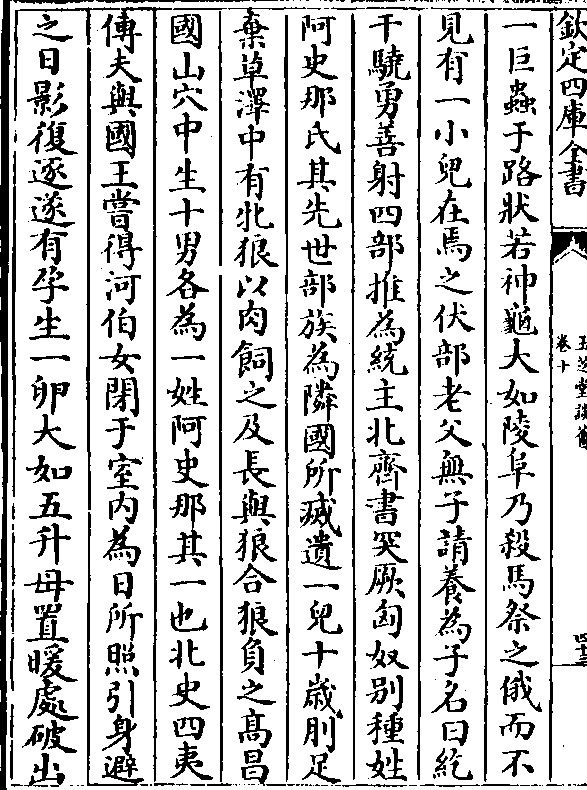 欽定四庫全書
卷十
一巨蟲于路狀若神龜大如陵阜乃殺馬祭之俄而不
見有一小兒在焉之伏部老父無子請養為子名曰紇
干驍勇善射四部推為統主北齊書突厥匈奴别種姓
阿史那氏其先世部族為隣國所滅遺一兒十歲刖足
棄草澤中有牝狼以肉飼之及長與狼合狼負之高昌
國山穴中生十男各為一姓阿史那其一也北史四夷
傳夫與國王嘗得河伯女閉于室内為日所照引身避
之日影復逐遂有孕生一卵大如五升母置暖處破出